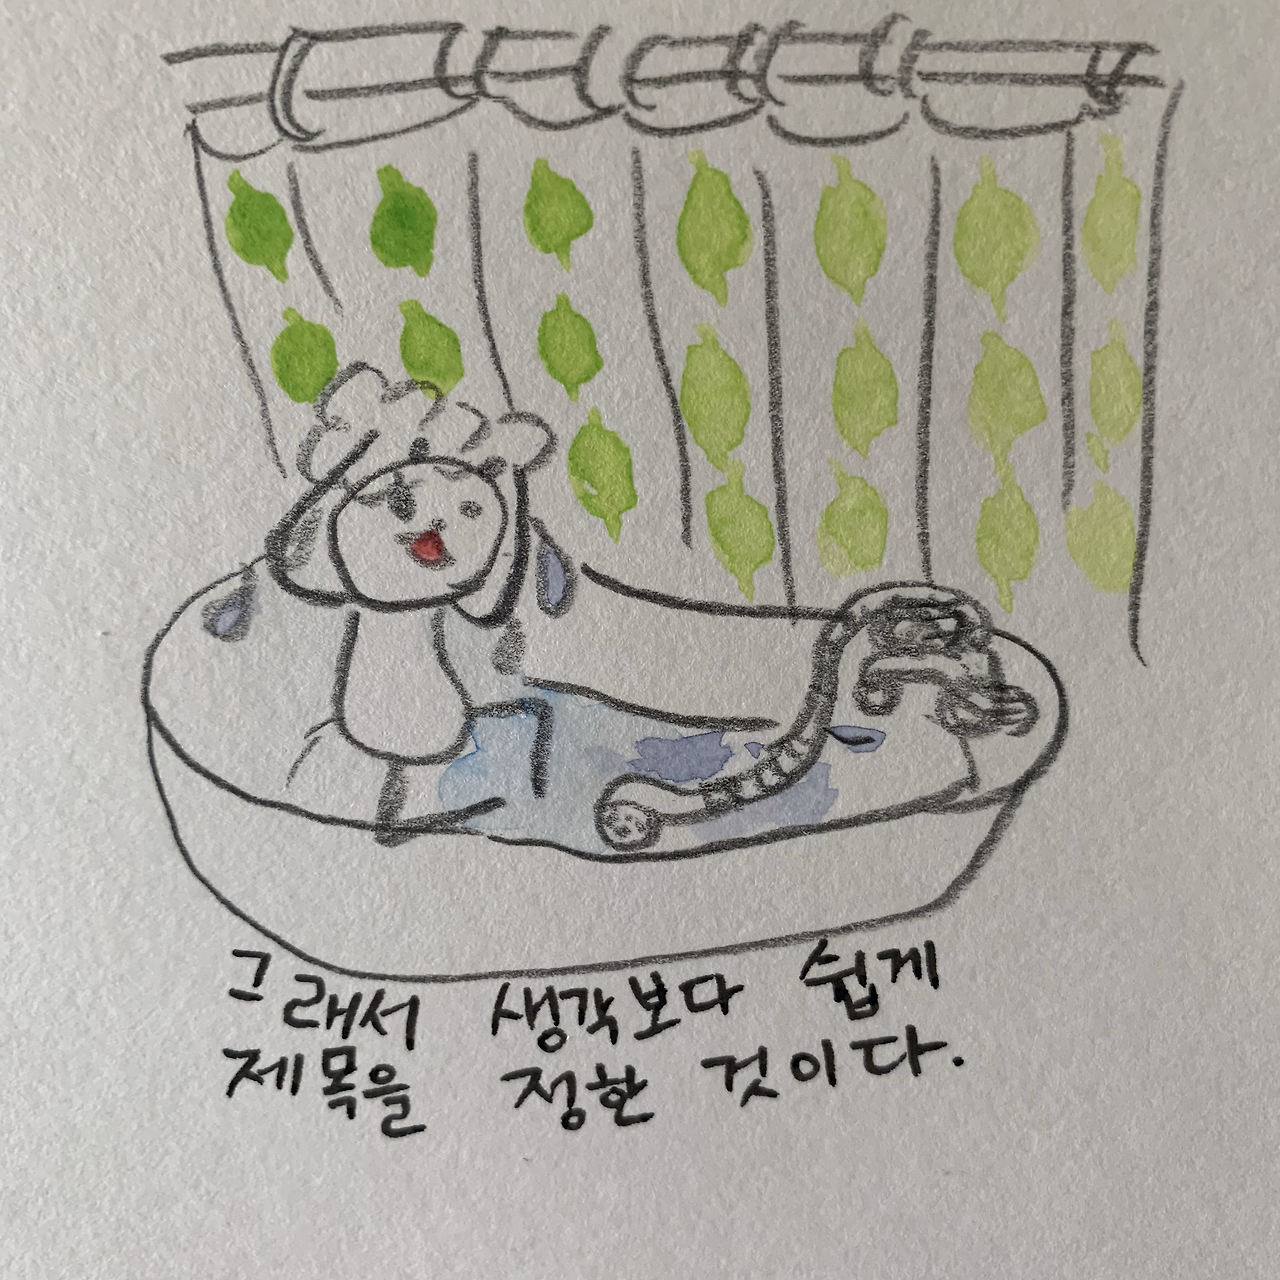 그래서 생각보다 쉽게
제목을 정한 것이다.